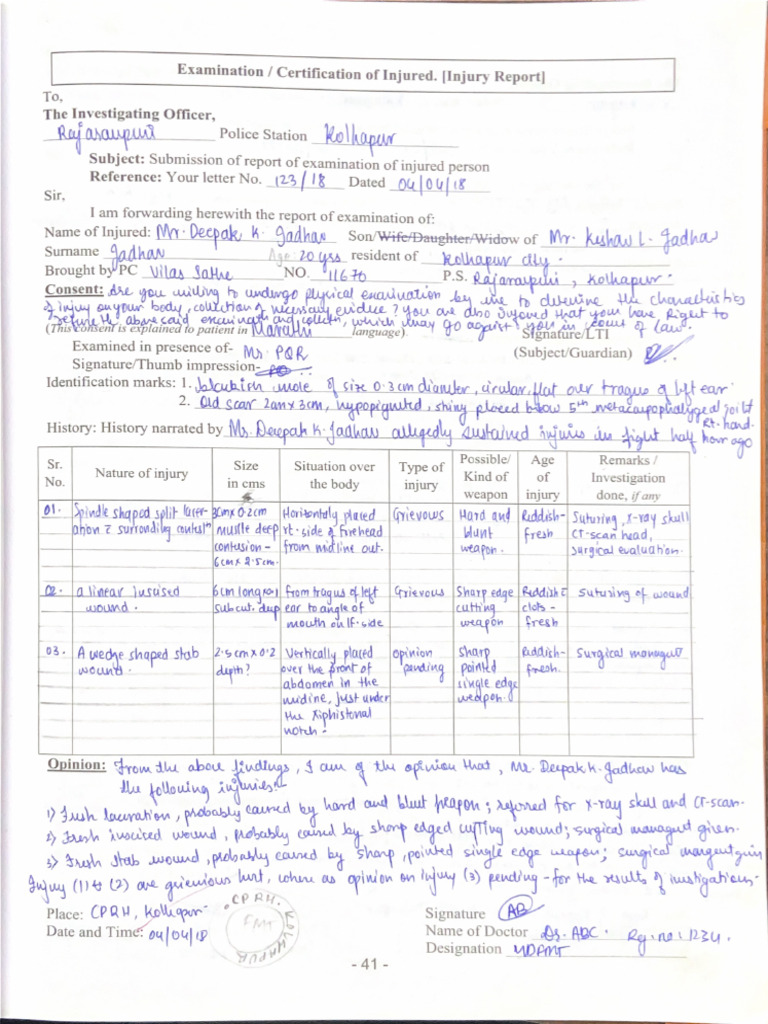 Examination / Certification of Injured. [Injury Report]
To,
The Investigating Officer,
Rajarampuri Police Station Kolhapur
Subject: Submission of report of examination of injured person
Reference: Your letter No. 123/18 Dated 04/04/18
Sir,
I am forwarding herewith the report of examination of:
Name of Injured: Mr. Deepak K. Jadhav Son/Wife/Daughter/Widow of Mr. Keshav L. Jadhav
Surname Jadhav Age 20 yrs resident of Kolhapur city.
Brought by PC Vilas Sathe NO. 11670 P.S. Rajarampuri, Kolhapur.
Consent: Are you willing to undergo physical examination by me to determine the characteristics
of injury on your body, collection of necessary evidence? You are also informed that you have Right to
the above said examination and collection, which may go against you in court of law.
(This consent is explained to patient in Marathi language) Signature/LTI
Examined in presence of- Mr. PQR (Subject/Guardian)
Signature/Thumb impression-
Identification marks: 1. mole of size 0.3cm diameter, circular, flat over tragus of left ear
2. Old scar 2cm x 3cm, hypopigmented, shiny placed below 5th metacarpophalyngeal joint
Rt. hand.
History: History narrated by Mr. Deepak K. Jadhav allegedly sustained injuries in fight half hour ago
Sr. No. Nature of injury Size in cms Situation over the body Type of injury Possible/ Kind of weapon Age of injury Remarks / Investigation done, if any
01. Spindle shaped split lacer- 3cm x 0.2cm Horizontaly placed Grievous Hard and Reddish- Suturing, x-ray skull
ation c̄ surrounding contusn muscle deep rt. side of forehead blunt fresh CT-scan head,
contusion- from midline out. weapon. surgical evaluation.
6cm x 2.5cm.
02. a linear Inscised 6cm long x 0.1 from tragus of left Grievous Sharp edge Reddish c̄ suturing of wound
wound. subcut. deep ear to angle of cutting clots-
mouth on lf. side weapon fresh
03. A wedge shaped stab 2.5cm x 0.2 Vertically placed opinion Sharp Reddish- Surgical managmt
wound. depth? over the front of pending pointed fresh.
abdomen in the single edge
midline, just under weapon.
the Xiphistonal
notch-
Opinion: From the above findings, I am of the opinion that, Mr. Deepak K. Jadhav has
the following injuries:-
1) Fresh laceration, probably caused by hard and blunt weapon; referred for x-ray skull and CT-scan.
2) Fresh inscised wound, probably caused by sharp edged cutting wound; surgical managmt given.
3) Fresh stab wound, probably caused by sharp, pointed single edge weapon; surgical managment given
Injury (1) & (2) are grievious hurt, where as opinion on injury (3) pending - for the results of investigations-
Place: CPRH, Kolhapur- Signature AB
Date and Time: 04/04/18 Name of Doctor Dr. ABC. Rg.no: 1234.
Designation
C P R H. KOLHAPUR
FMT
- 41 -